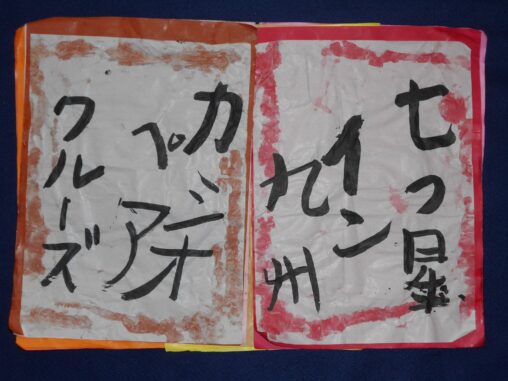 七つ星
イン
九州
カシオ
ペア
クルーズ